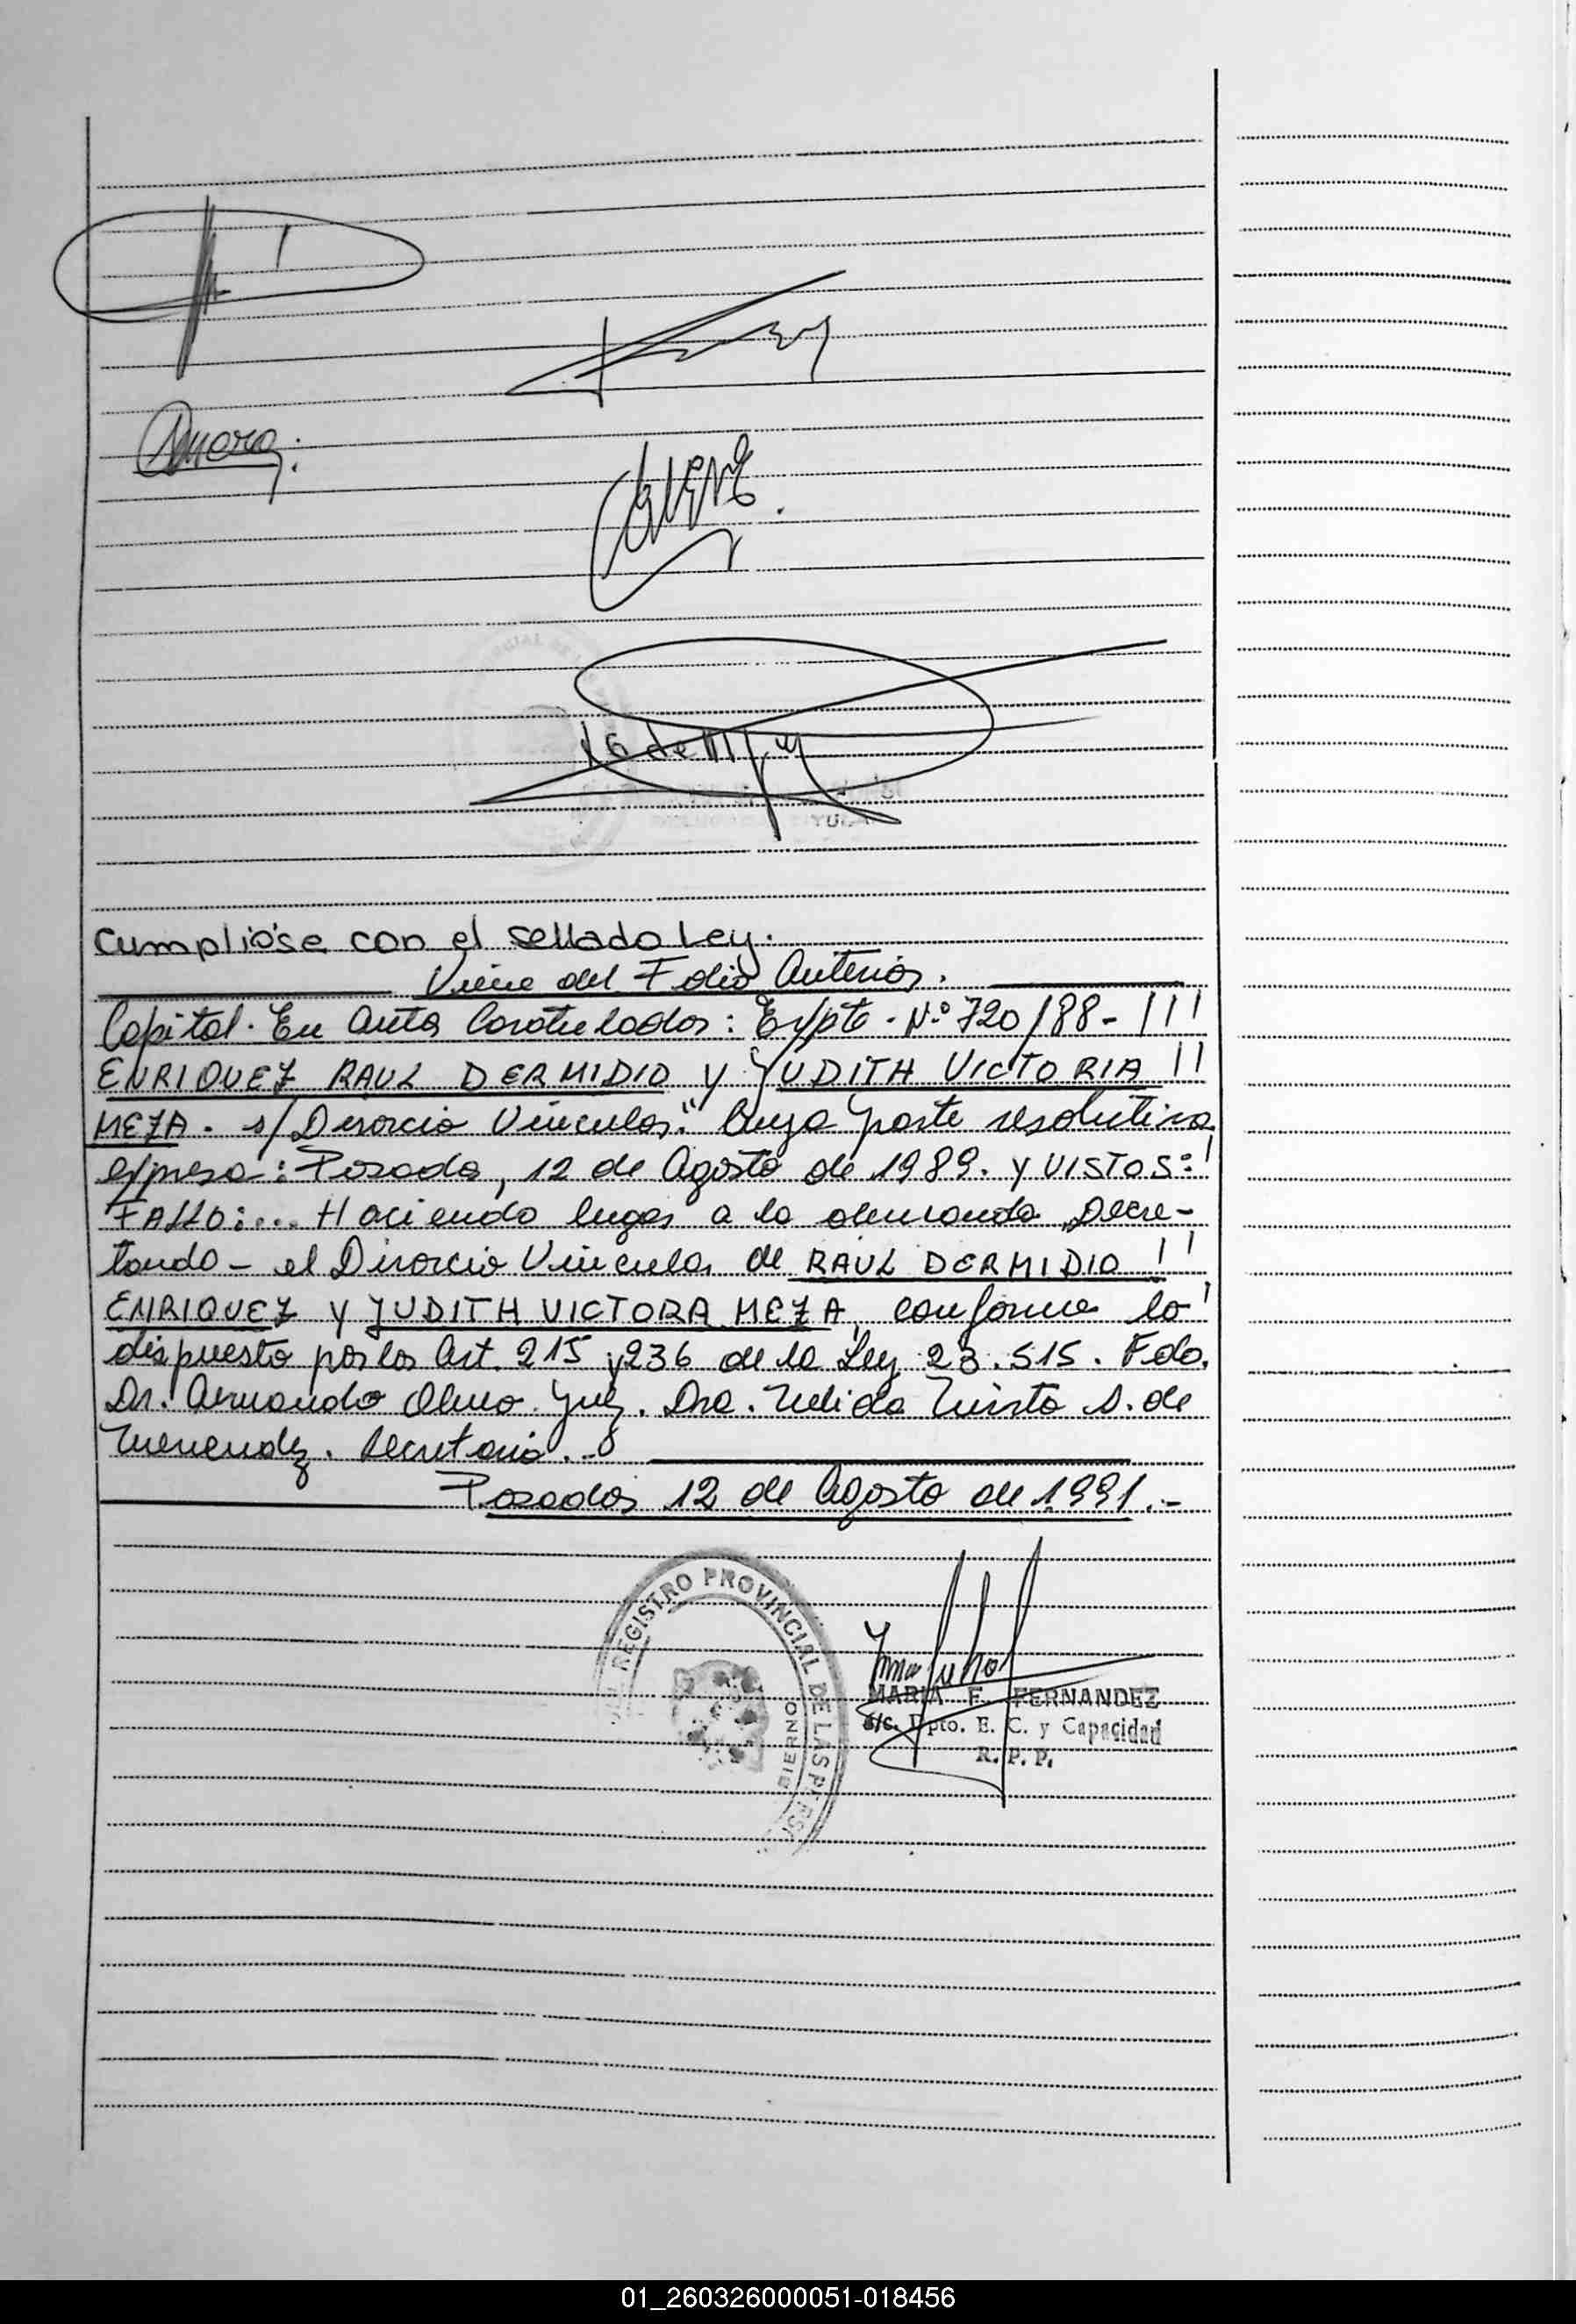 Cumplióse con el sellado Ley.
Viene del Folio Anterior.
Capital. En Autos Caratulados: Expte. N.º 720/88 - ///
ENRIQUEZ RAUL DERMIDIO y YUDITH VICTORIA //
MEZA. s/Divorcio Vincular." Cuya parte resolutiva
expresa: Posadas, 12 de Agosto de 1989. Y VISTOS: /
FALLO:... Haciendo lugar a la demanda, Decre-
tando - el Divorcio Vincular de RAUL DERMIDIO //
ENRIQUEZ Y JUDITH VICTORA MEZA, conforme lo /
dispuesto por los Art. 215 y 236 de la Ley 23.515. Fdo.
Dr. Armando Olmo. Juez. Dra. Mirta S. de
Menendez. Secretaria.-
Posadas 12 de Agosto de 1991.-
REGISTRO PROVINCIAL DE LAS P
MARIA F. FERNANDEZ
s/c. Dpto. E. C. y Capacidad
R. P. P.
01_260326000051-018456